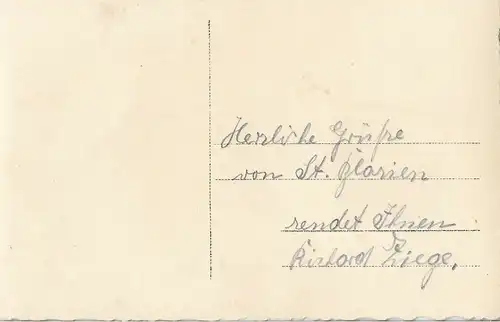 Herzliche Grüße
von St. Blasien
sendet Ihnen
Richard Ziege.